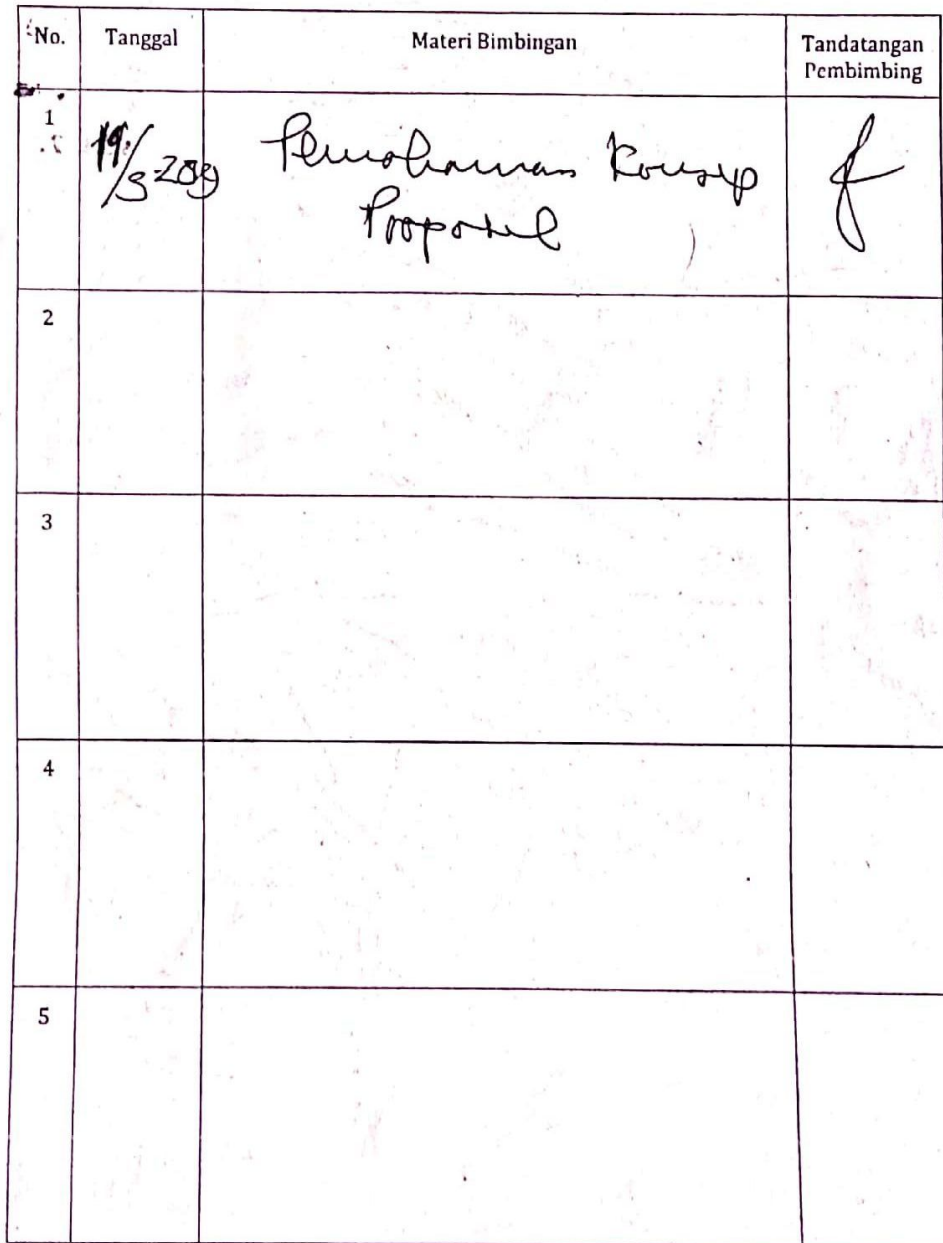 No. Tanggal Materi Bimbingan Tandatangan
Pembimbing
1 Pemahaman Konsep
Proposal
2
3
4
5